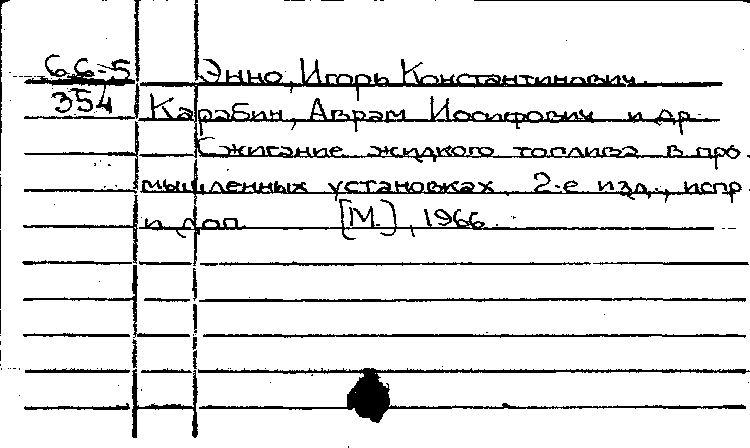 66-5 Энно, Игорь Константинович.
354 Карабин, Аврам Иосифович и др.
Сжигание жидкого топлива в про-
мышленных установках. 2-е изд., испр.
и доп. [М.], 1966.